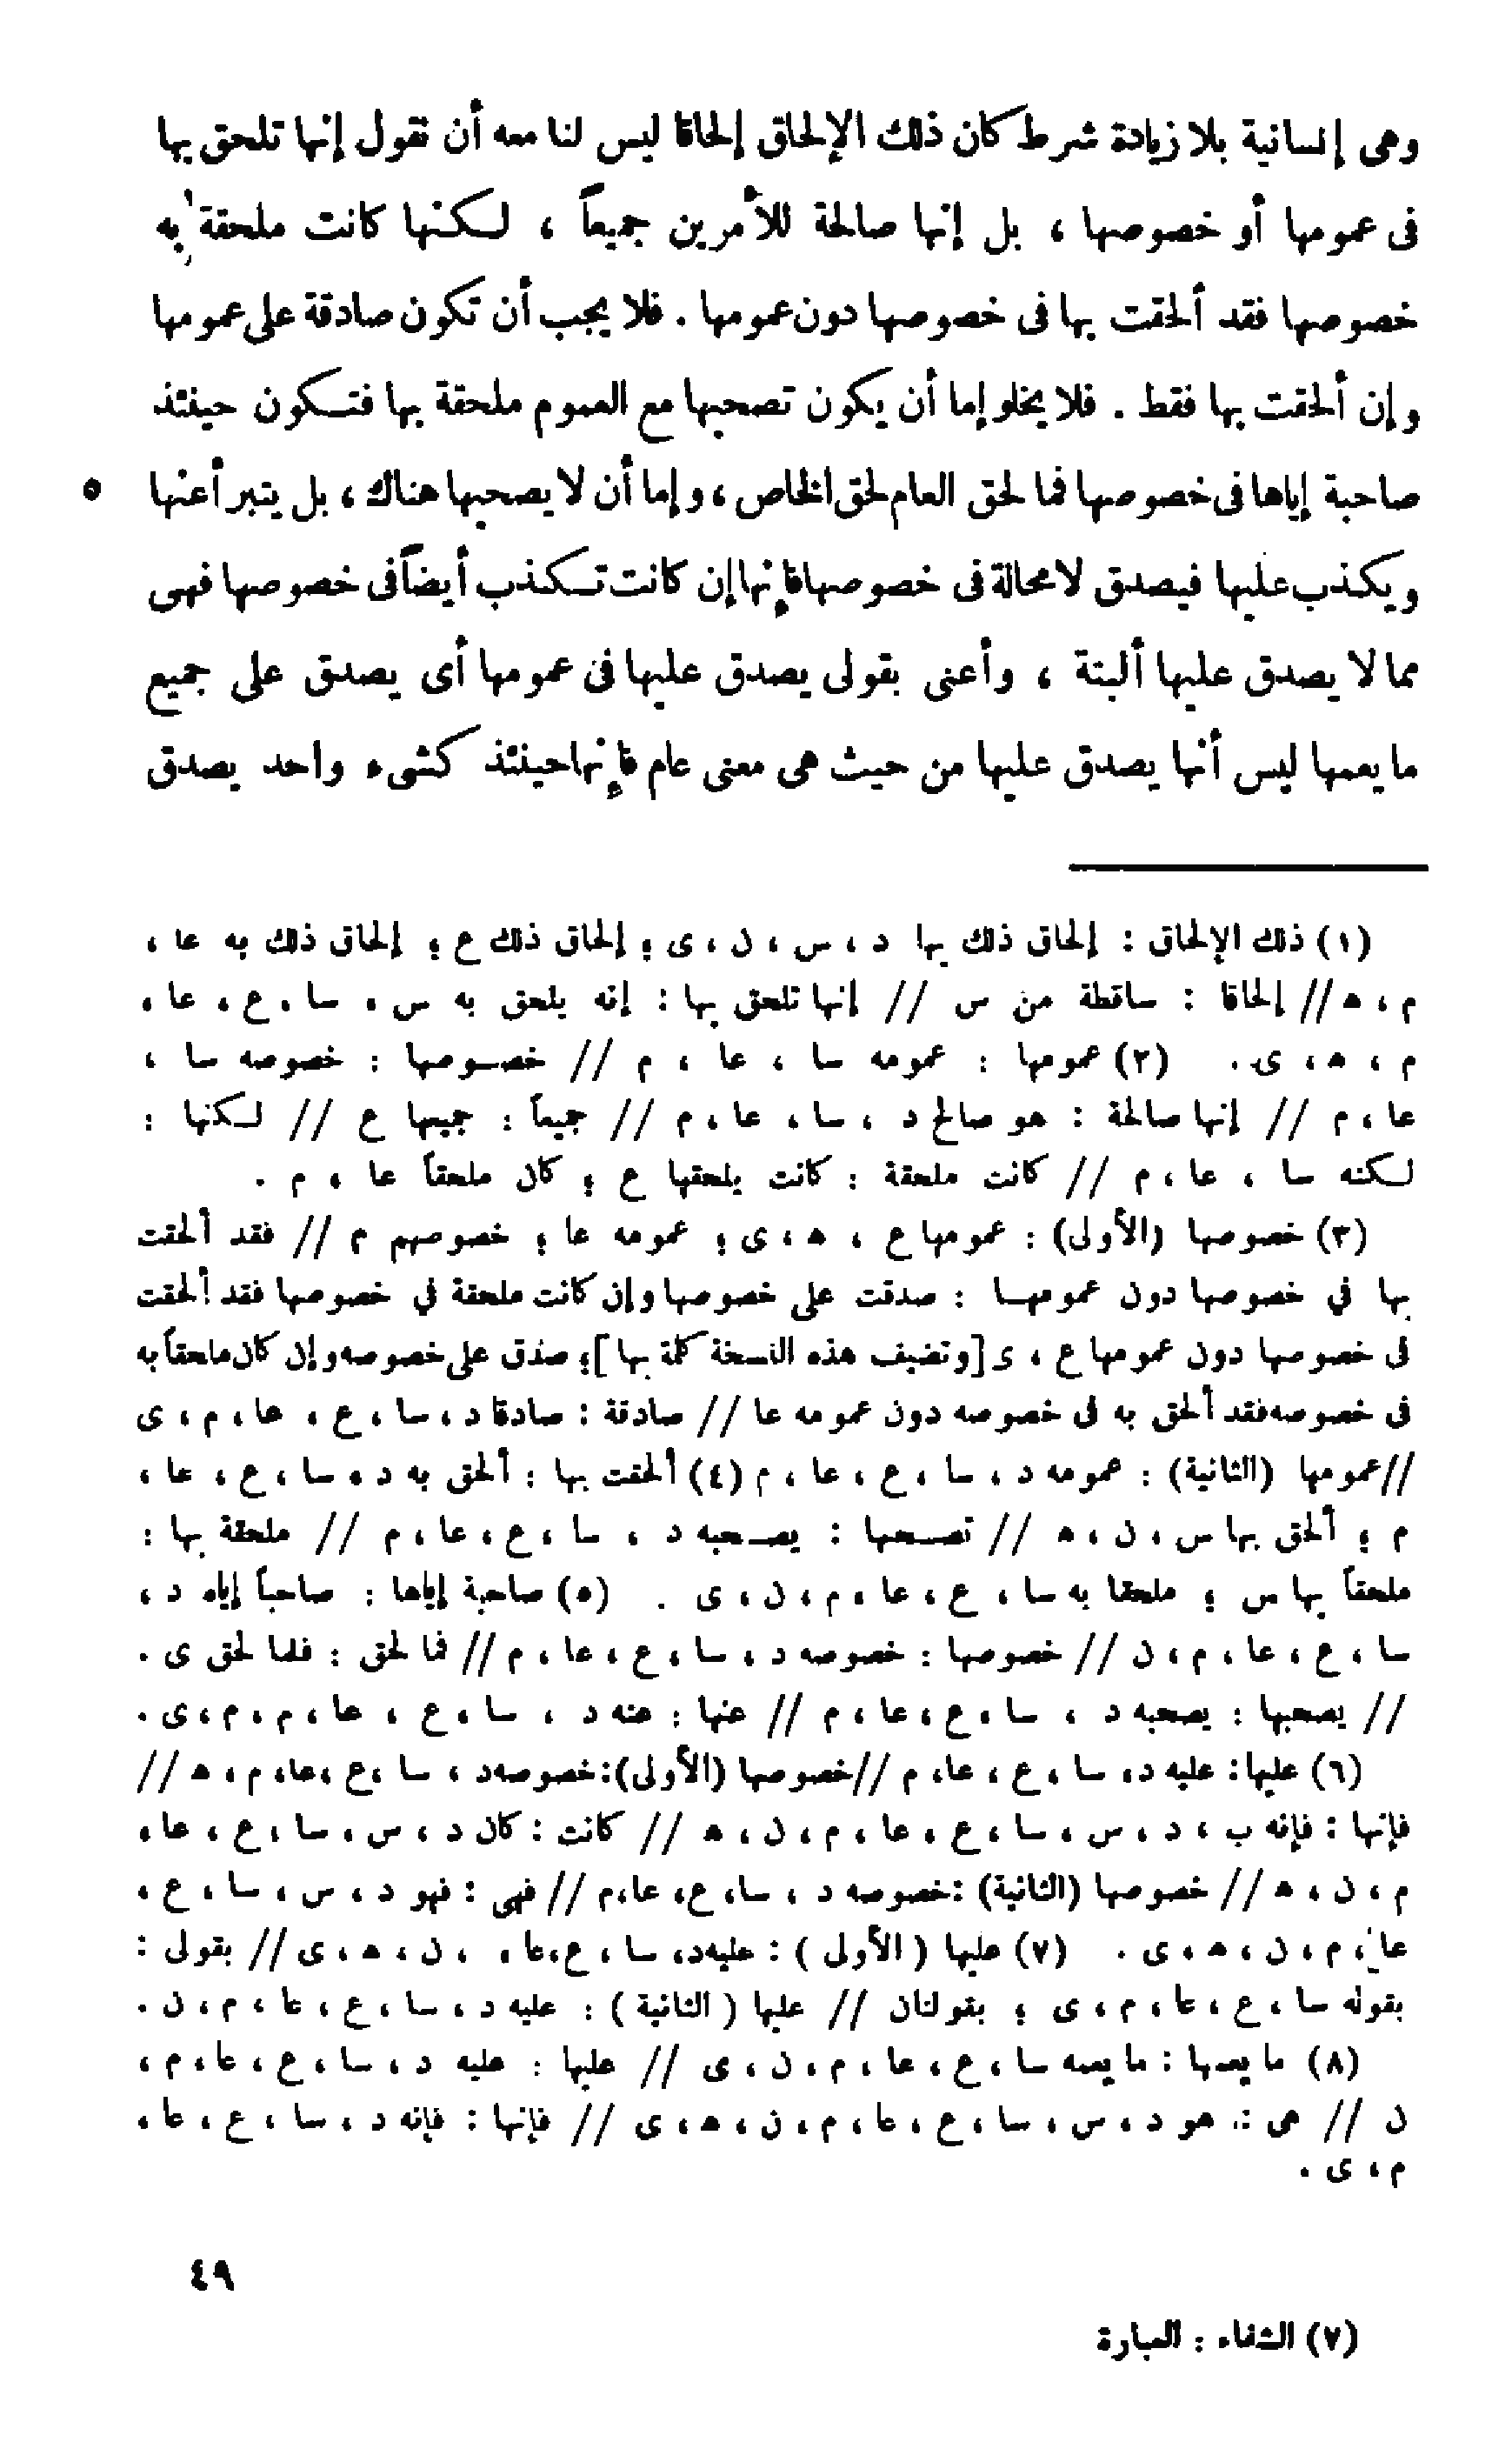 وهى إنسانية بلا زيادة شرط كان ذلك الإلحاق إلحاقا ليس لنا معه أن نقول إنها تلحق بها
فى عمومها أو خصوصها ، بل إنها صالحة للأمرين جميعاً ، لكنها كانت ملحقة به
خصوصها فقد ألحقت بها فى خصوصها دون عمومها . فلا يجب أن تكون صادقة على عمومها
وإن ألحقت بها فقط . فلا يخلو إما أن يكون تصحبها مع العموم ملحقة بها فتكون حينئذ
صاحبة إياها فى خصوصها فما لحق العام لحق الخاص ، وإما أن لا يصحبها هناك ، بل يتبرأ عنها ٥
ويكذب عليها فيصدق لا محالة فى خصوصها فإنها إن كانت تكذب أيضاً فى خصوصها فهى
مما لا يصدق عليها ألبتة ، وأعنى بقولى يصدق عليها فى عمومها أى يصدق على جميع
ما يعمها ليس أنها يصدق عليها من حيث هى معنى عام فإنها حينئذ كشىء واحد يصدق
(١) ذلك الإلحاق : إلحاق ذلك بها د ، س ، ن ، ى ؛ إلحاق ذلك ع ؛ إلحاق ذلك به عا ،
م ، ه // إلحاقا : ساقطة من س // إنها تلحق بها : إنه يلحق به س ، سا ، ع ، عا ،
م ، ه ، ى . (٢) عمومها : عمومه سا ، عا ، م // خصوصها : خصوصه سا ،
عا ، م // إنها صالحة : هو صالح د ، سا ، عا ، م // جميعاً : جميعها ع // لكنها :
لكنه سا ، عا ، م // كانت ملحقة : كانت يلحقها ع ؛ كان ملحقاً عا ، م .
(٣) خصوصها (الأولى) : عمومها ع ، ه ، ى ؛ عمومه عا ؛ خصوصهم م // فقد ألحقت
بها في خصوصها دون عمومها : صدقت على خصوصها وإن كانت ملحقة في خصوصها فقد ألحقت
فى خصوصها دون عمومها ع ، ى [وتضيف هذه النسخة كلمة بها] ؛ صدق على خصوصه وإن كان ملحقاً به
فى خصوصه فقد ألحق به فى خصوصه دون عمومه عا // صادقة : صادقا د ، سا ، ع ، عا ، م ، ى
// عمومها (الثانية) : عمومه د ، سا ، ع ، عا ، م (٤) ألحقت بها : ألحق به د ، سا ، ع ، عا ،
م ؛ ألحق بها س ، ن ، ه // تصحبها : يصحبه د ، سا ، ع ، عا ، م // ملحقة بها :
ملحقاً بها س ؛ ملحقا به سا ، ع ، عا ، م ، ن ، ى . (٥) صاحبة إياها : صاحباً إياه د ،
سا ، ع ، عا ، م ، ن // خصوصها : خصوصه د ، سا ، ع ، عا ، م // فما لحق : فلما لحق ى .
// يصحبها : يصحبه د ، سا ، ع ، عا ، م // عنها : عنه د ، سا ، ع ، عا ، م ، م ، ى .
(٦) عليها : عليه د ، سا ، ع ، عا ، م // خصوصها (الأولى) : خصوصه د ، سا ، ع ، عا ، م ، ه //
فإنها : فإنه ب ، د ، س ، سا ، ع ، عا ، م ، ن ، ه // كانت : كان د ، س ، سا ، ع ، عا ،
م ، ن ، ه // خصوصها (الثانية) : خصوصه د ، سا ، ع ، عا ، م // فهى : فهو د ، س ، سا ، ع ،
عا ، م ، ن ، ه ، ى . (٧) عليها ( الأولى ) : عليه د ، سا ، ع ، عا ، ، ن ، ه ، ى // بقولى :
بقوله سا ، ع ، عا ، م ، ى ؛ بقولنا ن // عليها ( الثانية ) : عليه د ، سا ، ع ، عا ، م ، ن .
(٨) ما يعمها : ما يعمه سا ، ع ، عا ، م ، ن ، ى // عليها : عليه د ، سا ، ع ، عا ، م ،
ن // هى : هو د ، س ، سا ، ع ، عا ، م ، ن ، ه ، ى // فإنها : فإنه د ، سا ، ع ، عا ،
م ، ى .
٤٩
(٧) الشفاء : العبارة